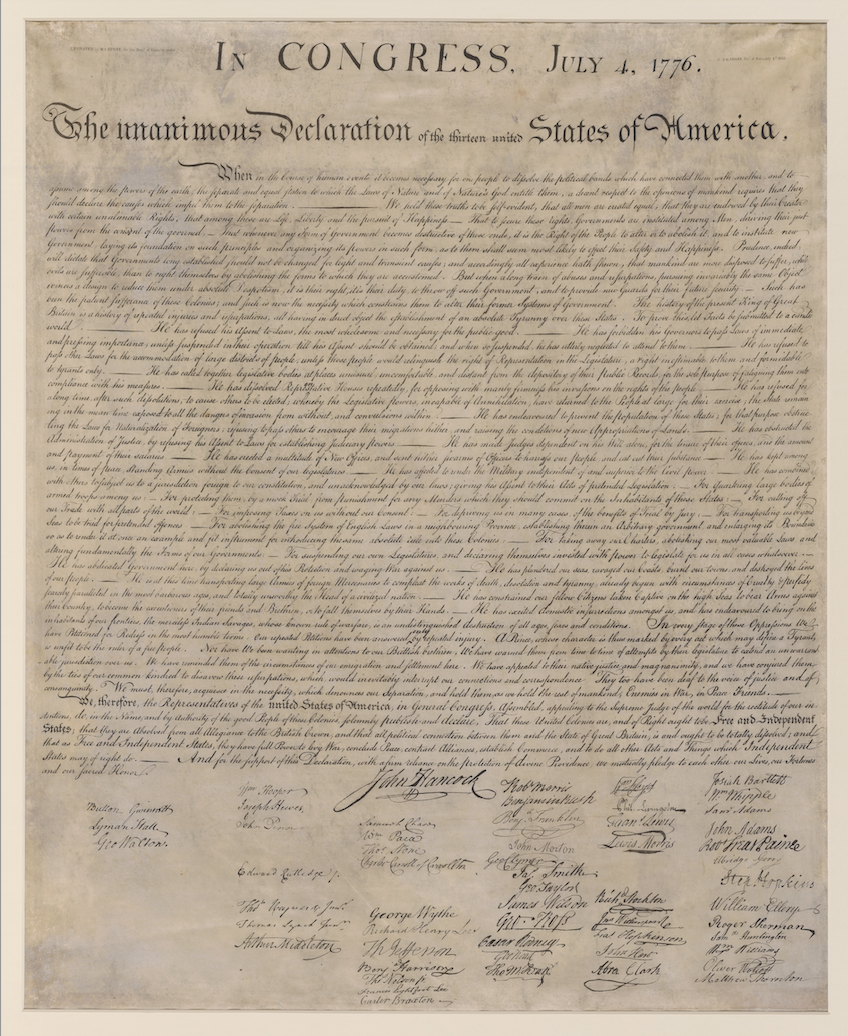 IN CONGRESS, JULY 4, 1776.
The unanimous Declaration of the thirteen united States of America,
When in the Course of human events it becomes necessary for one people to dissolve the political bands which have connected them with another, and to
assume among the powers of the earth, the separate and equal station to which the Laws of Nature and of Nature's God entitle them, a decent respect to the opinions of mankind requires that they
should declare the causes which impel them to the separation. We hold these truths to be self-evident, that all men are created equal, that they are endowed by their Creator
with certain unalienable Rights, that among these are Life, Liberty and the pursuit of Happiness — That to secure these rights, Governments are instituted among Men, deriving their just
powers from the consent of the governed — That whenever any Form of Government becomes destructive of these ends, it is the Right of the People to alter or to abolish it, and to institute new
Government, laying its foundation on such principles and organizing its powers in such form, as to them shall seem most likely to effect their Safety and Happiness. Prudence, indeed,
will dictate that Governments long established should not be changed for light and transient causes; and accordingly all experience hath shewn, that mankind are more disposed to suffer, while
evils are sufferable, than to right themselves by abolishing the forms to which they are accustomed. But when a long train of abuses and usurpations, pursuing invariably the same Object
evinces a design to reduce them under absolute Despotism, it is their right, it is their duty, to throw off such Government, and to provide new Guards for their future security — Such has
been the patient sufferance of these Colonies; and such is now the necessity which constrains them to alter their former Systems of Government. The history of the present King of Great
Britain is a history of repeated injuries and usurpations, all having in direct object the establishment of an absolute Tyranny over these States. To prove this let Facts be submitted to a candid
world. He has refused his Assent to Laws, the most wholesome and necessary for the public good. He has forbidden his Governors to pass Laws of immediate
and pressing importance, unless suspended in their operation till his Assent should be obtained; and when so suspended, he has utterly neglected to attend to them. He has refused to
pass other Laws for the accommodation of large districts of people, unless those people would relinquish the right of Representation in the Legislature, a right inestimable to them and formidable
to tyrants only. He has called together legislative bodies at places unusual, uncomfortable, and distant from the depository of their public Records, for the sole purpose of fatiguing them into
compliance with his measures. He has dissolved Representative Houses repeatedly, for opposing with manly firmness his invasions on the rights of the people. He has refused for
a long time, after such dissolutions, to cause others to be elected; whereby the Legislative powers, incapable of Annihilation, have returned to the People at large for their exercise; the State remain
ing in the mean time exposed to all the dangers of invasion from without, and convulsions within. He has endeavoured to prevent the population of these States; for that purpose obstruc
ting the Laws for Naturalization of Foreigners; refusing to pass others to encourage their migrations hither, and raising the conditions of new Appropriations of Lands. He has obstructed the
Administration of Justice, by refusing his Assent to Laws for establishing Judiciary powers. He has made Judges dependent on his Will alone, for the tenure of their offices, and the amount
and payment of their salaries. He has erected a multitude of New Offices, and sent hither swarms of Officers to harrass our people, and eat out their substance. He has kept among
us, in times of peace, Standing Armies without the Consent of our legislatures. He has affected to render the Military independent of and superior to the Civil power. He has combined
with others to subject us to a jurisdiction foreign to our constitution, and unacknowledged by our laws; giving his Assent to their Acts of pretended Legislation: For Quartering large bodies of
armed troops among us: For protecting them, by a mock Trial, from punishment for any Murders which they should commit on the Inhabitants of these States: For cutting off
our Trade with all parts of the world: For imposing Taxes on us without our Consent: For depriving us in many cases, of the benefits of Trial by Jury: For transporting us beyond
Seas to be tried for pretended offences For abolishing the free System of English Laws in a neighbouring Province, establishing therein an Arbitrary government, and enlarging its Boundaries
so as to render it at once an example and fit instrument for introducing the same absolute rule into these Colonies: For taking away our Charters, abolishing our most valuable Laws, and
altering fundamentally the Forms of our Governments: For suspending our own Legislatures, and declaring themselves invested with power to legislate for us in all cases whatsoever.
He has abdicated Government here, by declaring us out of his Protection and waging War against us. He has plundered our seas, ravaged our Coasts, burnt our towns, and destroyed the lives
of our people. He is at this time transporting large Armies of foreign Mercenaries to compleat the works of death, desolation and tyranny, already begun with circumstances of Cruelty & perfidy
scarcely paralleled in the most barbarous ages, and totally unworthy the Head of a civilized nation. He has constrained our fellow Citizens taken Captive on the high Seas to bear Arms against
their Country, to become the executioners of their friends and Brethren, or to fall themselves by their Hands. He has excited domestic insurrections amongst us, and has endeavoured to bring on the
inhabitants of our frontiers, the merciless Indian Savages, whose known rule of warfare, is an undistinguished destruction of all ages, sexes and conditions. In every stage of these Oppressions We
have Petitioned for Redress in the most humble terms: Our repeated Petitions have been answered only by repeated injury. A Prince, whose character is thus marked by every act which may define a Tyrant,
is unfit to be the ruler of a free people. Nor have We been wanting in attentions to our Brittish brethren. We have warned them from time to time of attempts by their legislature to extend an unwarrant
able jurisdiction over us. We have reminded them of the circumstances of our emigration and settlement here. We have appealed to their native justice and magnanimity, and we have conjured them
by the ties of our common kindred to disavow these usurpations, which, would inevitably interrupt our connections and correspondence. They too have been deaf to the voice of justice and of
consanguinity. We must, therefore, acquiesce in the necessity, which denounces our Separation, and hold them, as we hold the rest of mankind, Enemies in War, in Peace Friends.
We, therefore, the Representatives of the united States of America, in General Congress, Assembled, appealing to the Supreme Judge of the world for the rectitude of our in
tentions, do, in the Name, and by Authority of the good People of these Colonies, solemnly publish and declare, That these United Colonies are, and of Right ought to be Free and Independent
States; that they are Absolved from all Allegiance to the British Crown, and that all political connection between them and the State of Great Britain, is and ought to be totally dissolved; and
that as Free and Independent States, they have full Power to levy War, conclude Peace, contract Alliances, establish Commerce, and to do all other Acts and Things which Independent
States may of right do. And for the support of this Declaration, with a firm reliance on the protection of divine Providence, we mutually pledge to each other our Lives, our Fortunes
and our sacred Honor.
Button Gwinnett
Lyman Hall
Geo Walton.
Wm Hooper
Joseph Hewes,
John Penn
Edward Rutledge.
Thos Heyward Junr.
Thomas Lynch Junr.
Arthur Middleton
John Hancock
Samuel Chase
Wm Paca
Thos Stone
Charles Carroll of Carrollton
George Wythe
Richard Henry Lee
Th Jefferson
Benj Harrison
Thos Nelson jr.
Francis Lightfoot Lee
Carter Braxton
Robt Morris
Benjamin Rush
Benj. Franklin
John Morton
Geo Clymer
Jas. Smith
Geo. Taylor
James Wilson
Geo. Ross
Caesar Rodney
Geo Read
Tho M:Kean
Wm Floyd
Phil. Livingston
Frans. Lewis
Lewis Morris
Richd. Stockton
Jno Witherspoon
Fras. Hopkinson
John Hart
Abra Clark
Josiah Bartlett
Wm Whipple
Saml Adams
John Adams
Robt Treat Paine
Elbridge Gerry
Step. Hopkins
William Ellery
Roger Sherman
Samel Huntington
Wm Williams
Oliver Wolcott
Matthew Thornton